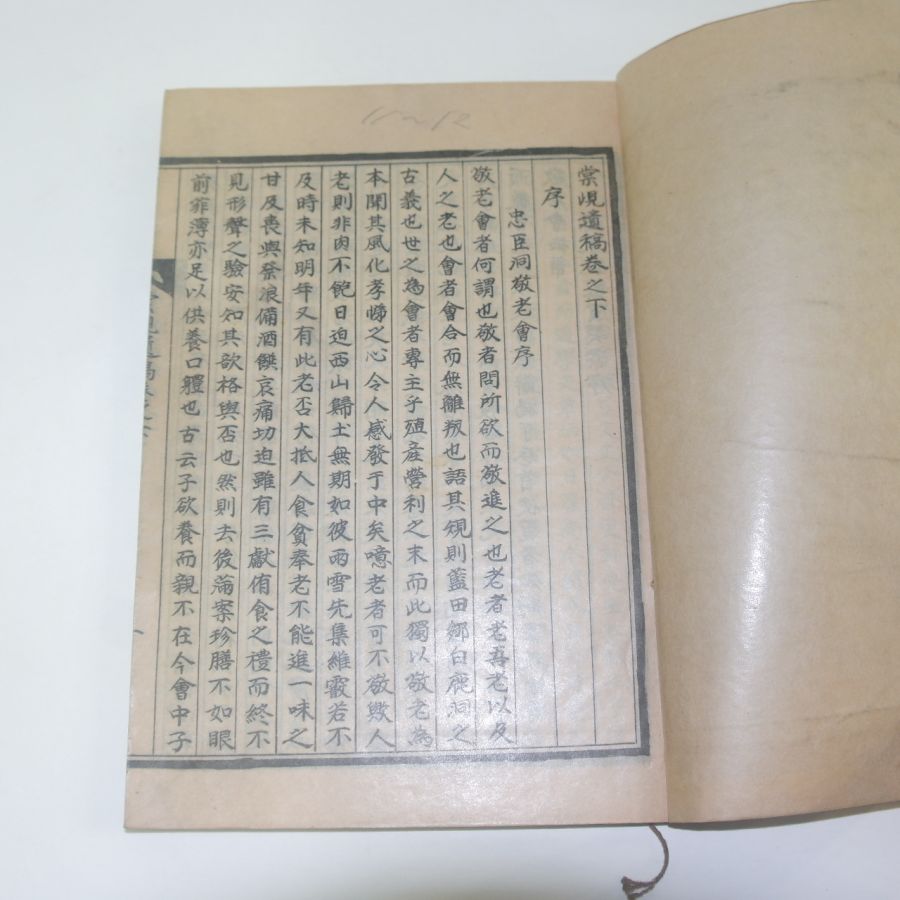 棠峴遺稿卷之下
序
忠臣洞敬老會序
敬老會者何謂也敬者問所欲而敬進之也老者老吾老以及
人之老也會者會合而無離叛也語其規則藍田鄉白鹿洞之
古義也世之為會者專主乎殖產營利之末而此獨以敬老為
本聞其風化孝悌之心令人感發于中矣噫老者可不敬歟人
老則非肉不飽日迫西山歸土無期如彼雨雪先集維霰若不
及時未知明年又有此老否大抵人食貧奉老不能進一味之
甘及喪與祭浪備酒饌哀痛切迫雖有三獻侑食之禮而終不
見形聲之驗安知其歆格與否也然則去後滿案珍膳不如眼
前菲薄亦足以供養口軆也古云子欲養而親不在今會中子
11~12